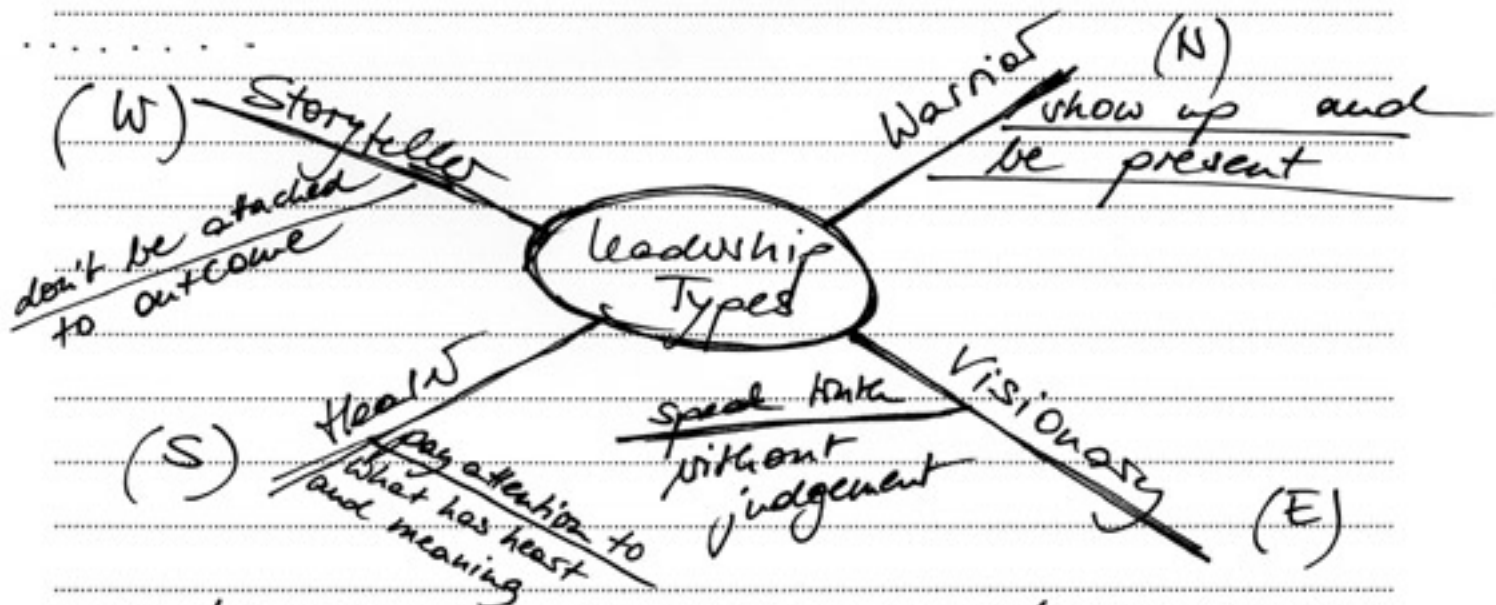 (W)
Storyteller
don't be attached
to outcome
Warrior
(N)
show up and
be present
Leadership
Types
Healer
(S)
pay attention to
what has heart
and meaning
speak truth
without
judgement
Visionary
(E)